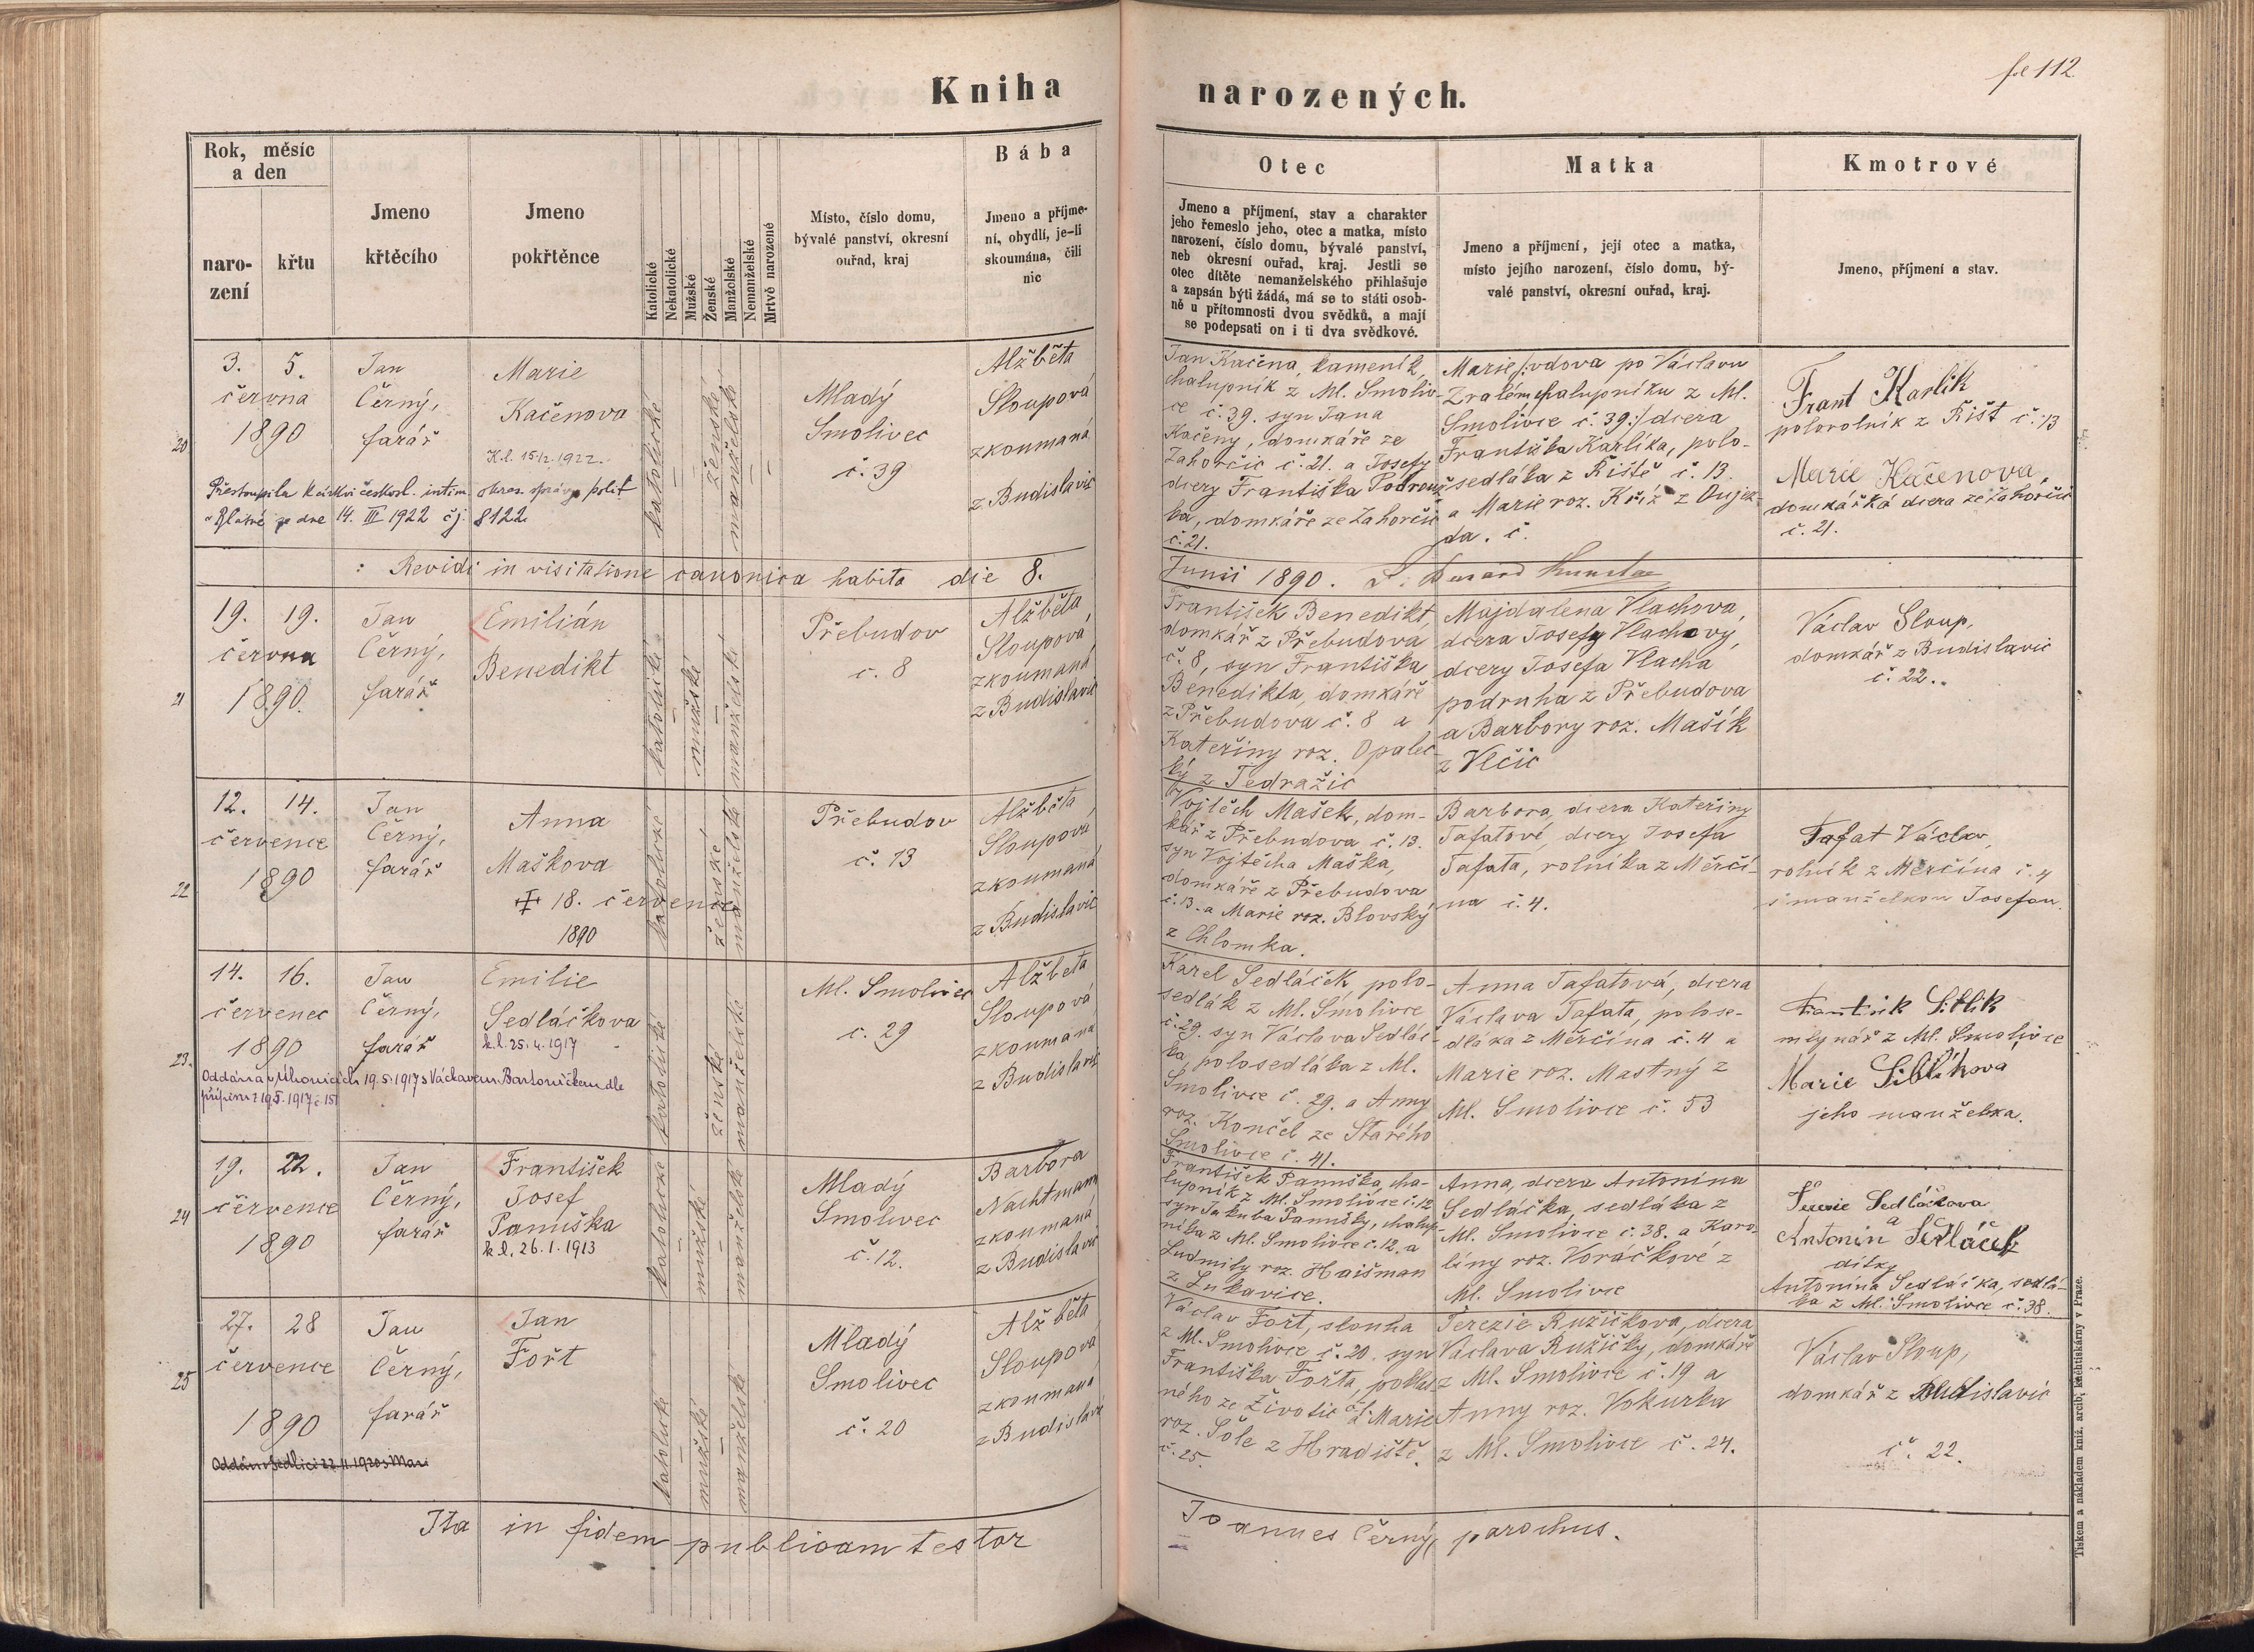 fol 112
Kniha narozených.
Rok, měsíc
a den
naro-
zení
křtu
Jmeno
křtěcího
Jmeno
pokřtěnce
Katolické
Nekatolické
Mužské
Ženské
Manželské
Nemanželské
Mrtvě narozené
Místo, číslo domu,
bývalé panství, okresní
ouřad, kraj
Bába
Jmeno a příjme-
ní, obydlí, je-li
skoumána, čili
nic
Otec
Jmeno a příjmení, stav a charakter
jeho řemeslo jeho, otec a matka, místo
narození, číslo domu, bývalé panství,
neb okresní ouřad, kraj. Jestli se
otec dítěte nemanželského přihlašuje
a zapsán býti žádá, má se to státi osob-
ně u přítomnosti dvou svědků, a mají
se podepsati on i ti dva svědkové.
Matka
Jmeno a příjmení, její otec a matka,
místo jejího narození, číslo domu, bý-
valé panství, okresní ouřad, kraj.
Kmotrové
Jmeno, příjmení a stav.
20
3.
5.
června
1890
Jan
Černý,
farář
Marie
Kačenova
K.l. 15/12.1922.
Přestoupila k církvi českosl. intim. okres. správy polit
v Blatné ze dne 14. III 1922 čj. 8122
katolické
ženské
manželské
Mladý
Smolivec
č. 39
Alžběta
Sloupová
zkoumaná
z Budislavic
Jan Kačena, kameník,
chalupník z Ml. Smoliv-
ce č. 39. syn Jana
Kačeny, domkáře ze
Zahorčic č. 21. a Josefy
dcery Františka Podrouž-
ka, domkáře ze Zahorčic
č. 21.
Marie /: vdova po Václavu
Zralém chalupníku z Ml.
Smolivce č. 39:/ dcera
Františka Karlíka, polo-
sedláka z Řiště č. 13.
a Marie roz. Kříž z Oujez-
da. č.
Frant Karlík
polorolník z Řišt č. 13
Marie Kačenová,
domkářká dcera ze Zahorčic
č. 21.
: Revidi in visitatione canonica habita die 8. Junii 1890.
21
19.
19.
června
1890.
Jan
Černý,
farář
Emilián
Benedikt
katolické
mužské
manželské
Přebudov
č. 8
Alžběta
Sloupová
zkoumaná
z Budislavic
František Benedikt,
domkář z Přebudova
č. 8, syn Františka
Benedikta, domkáře
z Přebudova č. 8 a
Kateřiny roz. Opalec-
ký z Tedražic
Majdalena Vlachova,
dcera Josefy Vlachovy,
dcery Josefa Vlacha
podruha z Přebudova
a Barbory roz. Mašík
z Vlčic
Václav Sloup,
domkář z Budislavic
č. 22.
22
12.
14.
července
1890
Jan
Černý,
farář
Anna
Maškova
18. července
1890
katolické
ženské
manželské
Přebudov
č. 13
Alžběta
Sloupová
zkoumaná
z Budislavic
Vojtěch Mašek, dom-
kář z Přebudova č. 13.
syn Vojtěcha Maška,
domkáře z Přebudova
č. 13. a Marie roz. Blovský
z Chlomka.
Barbora, dcera Kateřiny
Tafatové, dcery Josefa
Tafata, rolníka z Měrčí-
na č. 4.
Tafat Václav,
rolník z Měrčína č. 4
s manželkou Josefou.
23.
14.
16.
červenec
1890
Jan
Černý,
farář
Emilie
Sedláčkova
k.l. 25. 4. 1917
Oddána v Úhonicích 19.5.1917 s Václavem Bartoníčkem dle
připisu z 19.5.1917 č 151
katolické
ženské
manželské
Ml. Smolivec
č. 29
Alžběta
Sloupová
zkoumaná
z Budislavic
Karel Sedláček, polo-
sedlák z Ml. Smolivce
č. 29. syn Václava Sedláč-
ka, polosedláka z Ml.
Smolivce č. 29. a Anny
roz. Končel ze Starého
Smolivce č. 41.
Anna Tafatová, dcera
Václava Tafata, polose-
dláka z Měrčína č. 4 a
Marie roz. Mastný z
Ml. Smolivce č. 53
František Siblík
mlynář z Ml. Smolivce
Marie Siblíková
jeho manželka.
24
19.
22.
července
1890
Jan
Černý,
farář
František
Josef
Panuška
k.l. 26. 1. 1913
katolické
mužské
manželské
Mladý
Smolivec
č. 12.
Barbora
Nachtmann
zkoumaná
z Budislavic
František Panuška, cha-
lupník z Ml. Smolivce č. 12
syn Jakuba Panušky, chalup-
níka z Ml. Smolivce č. 12, a
Ludmily roz. Haišman
z Lukavice.
Anna, dcera Antonína
Sedláčka, sedláka z
Ml. Smolivce č. 38. a Karo-
líny roz. Voráčkové z
Ml. Smolivce
Terezie Sedláčkova
a
Antonín Sedláček
dítky
Antonína Sedláčka, sedlá-
ka z Ml. Smolivce č. 38.
25
27.
28
července
1890
Jan
Černý,
farář
Jan
Fořt
Oddán v Sedlici 22.11.1920 s Mari
katolické
mužské
manželské
Mladý
Smolivec
č. 20
Alžběta
Sloupová
zkoumaná
z Budislavic
Václav Fořt, slouha
z Ml. Smolivce č. 20. syn
Františka Fořta, poklas-
ného ze Životic a Marie
roz. Šole z Hradiště.
č. 25.
Terezie Ružičkova, dcera
Václava Ružičky, domkáře
z Ml. Smolivce č. 19 a
Anny roz. Vokurka
z Ml. Smolivce č. 24.
Václav Sloup,
domkář z Budislavic
č. 22.
Ita in fidem publicam testor Joannes Černý, parochus.
Tiskem a nákladem kníž. arcib. kněhtiskárny v Praze.